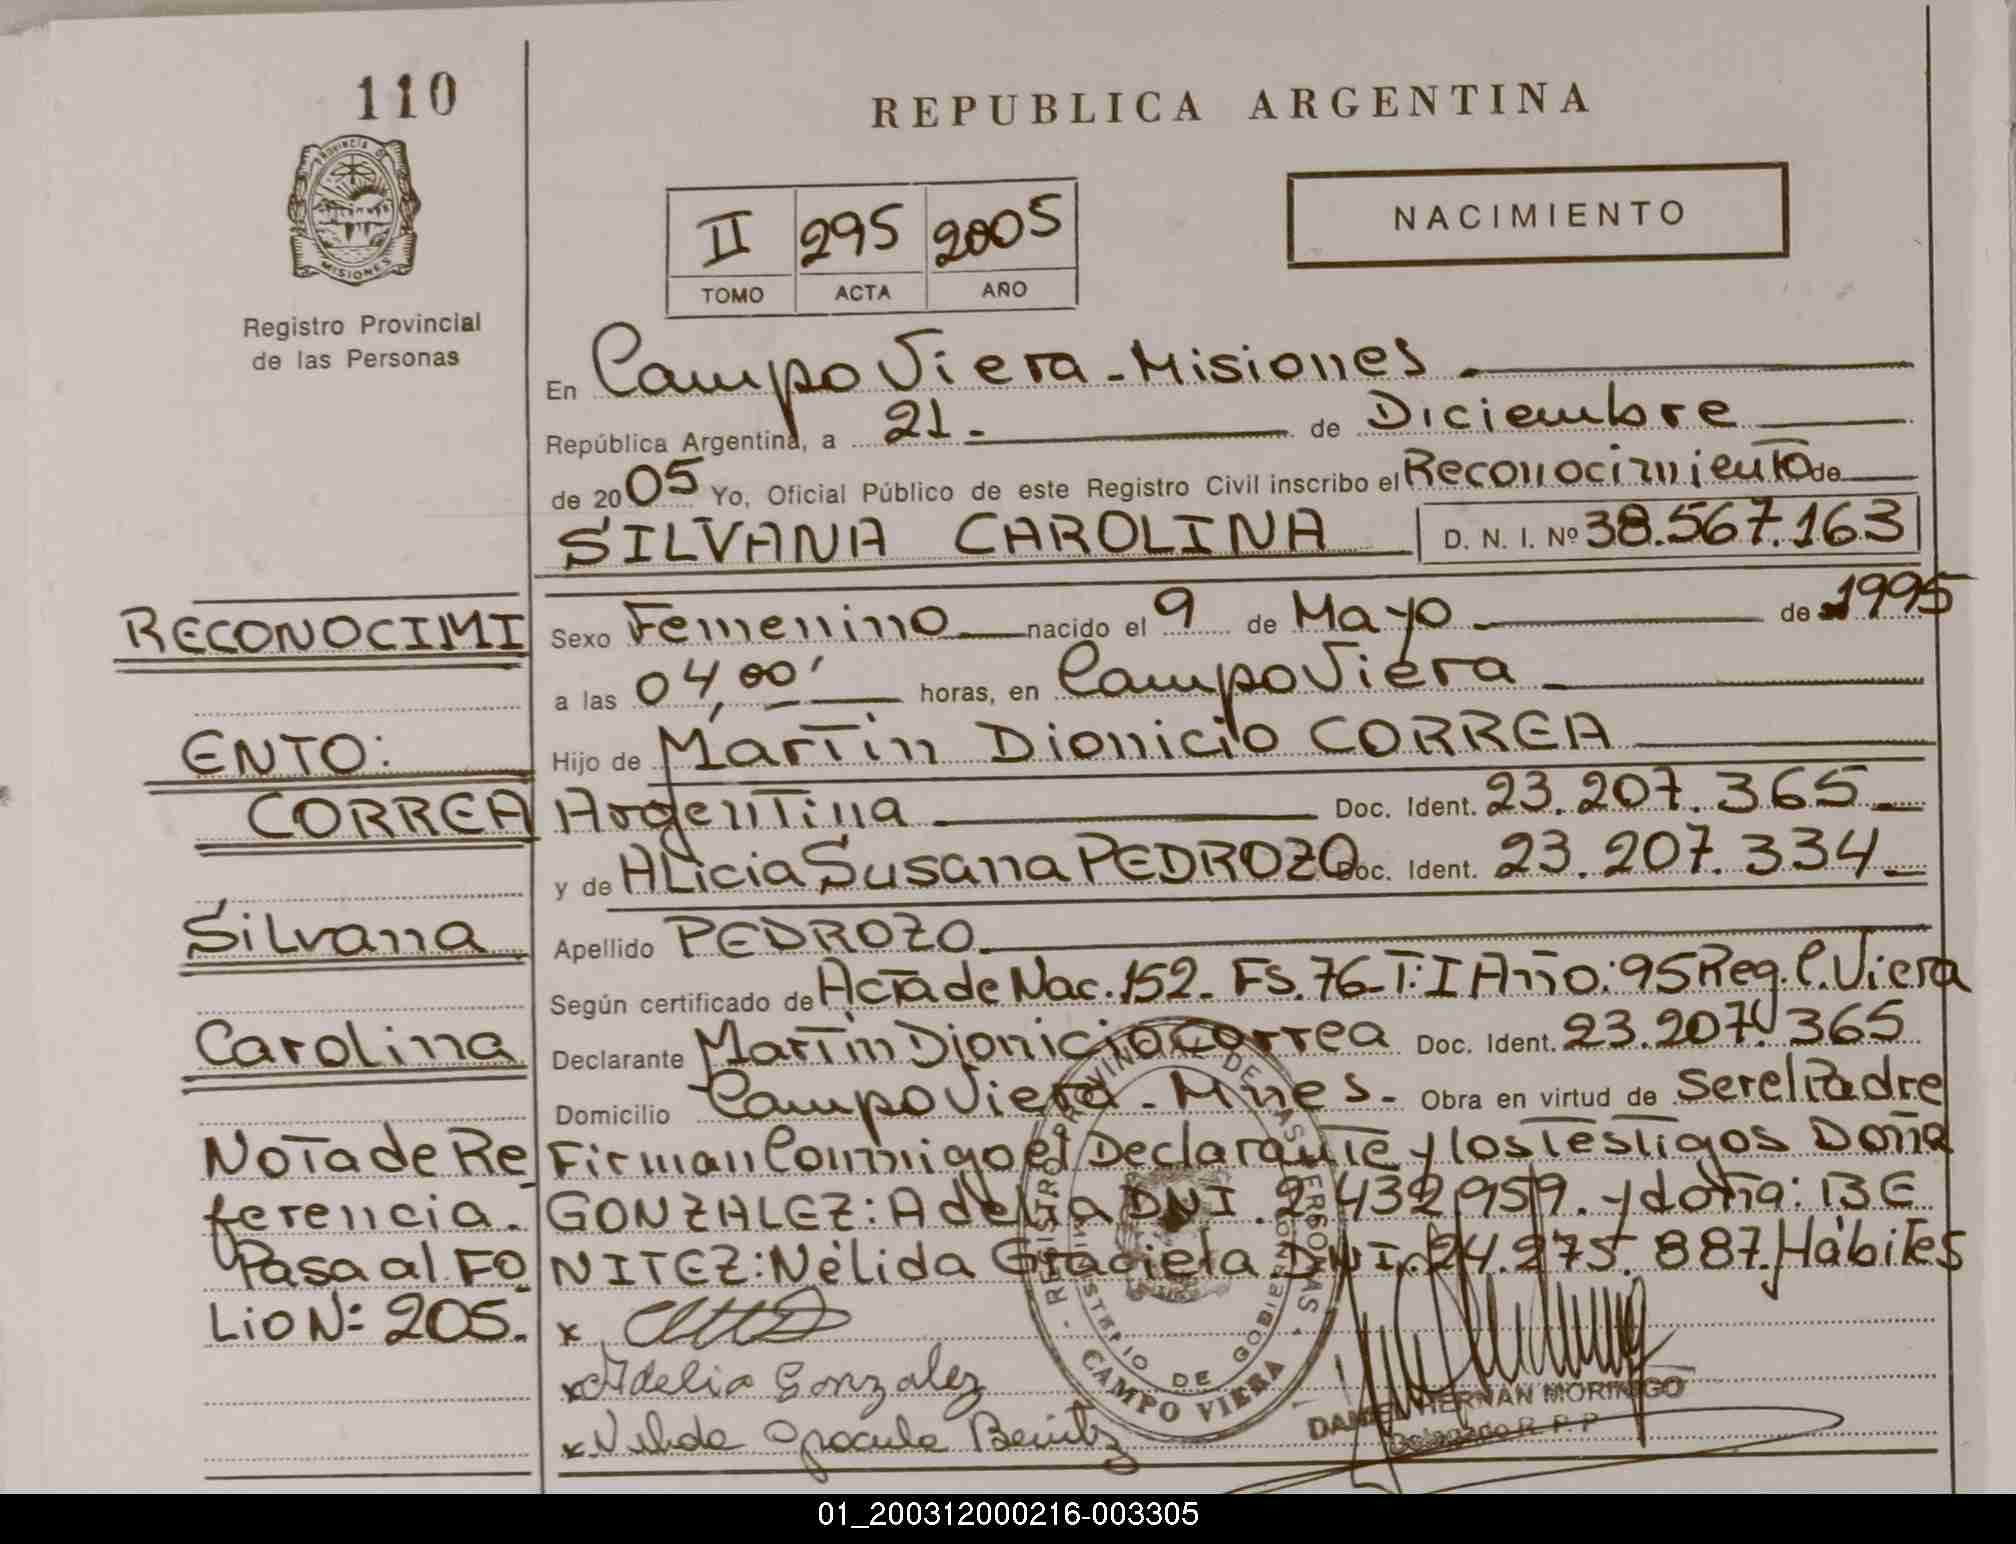 110
REPUBLICA ARGENTINA
PROVINCIA DE
MISIONES
Registro Provincial
de las Personas
II 295 2005
TOMO ACTA AÑO
NACIMIENTO
En Campo Viera - Misiones
República Argentina, a 21 - de Diciembre
de 2005 Yo, Oficial Público de este Registro Civil inscribo el Reconocimiento de
SILVANA CAROLINA D. N. I. Nº 38.567.163
RECONOCIMI
Sexo Femenino nacido el 9 de Mayo de 1995
a las 04,00' horas, en Campo Viera
ENTO:
Hijo de Martin Dionicio CORREA
CORREA
Argentina Doc. Ident. 23.207.365
y de ALicia Susana PEDROZO Doc. Ident. 23.207.334
Silvana
Apellido PEDROZO
Según certificado de Acta de Nac. 152 - Fs. 76 - T: I Año: 95 Reg. C. Viera
Carolina
Declarante Martin Dionicio Correa Doc. Ident. 23.207.365
Domicilio Campo Viera - Mnes - Obra en virtud de ser el Padre
Nota de Re
Firman Conmigo el Declarante y los Testigos Doña
ferencia.
GONZALEZ: Adelia DNI. 432.959. y doña: BE
Pasa al FO
NITEZ: Nélida Graciela DNI. 24.275.887. Hábiles
Lio N: 205.
x
x Adelia Gonzalez
x Nelida Graciela Benitez
REGISTRO PROVINCIAL DE LAS PERSONAS
MINISTERIO DE GOBIERNO
CAMPO VIERA
DANIEL HERNAN MORINIGO
Delegado R. P. P
01_200312000216-003305